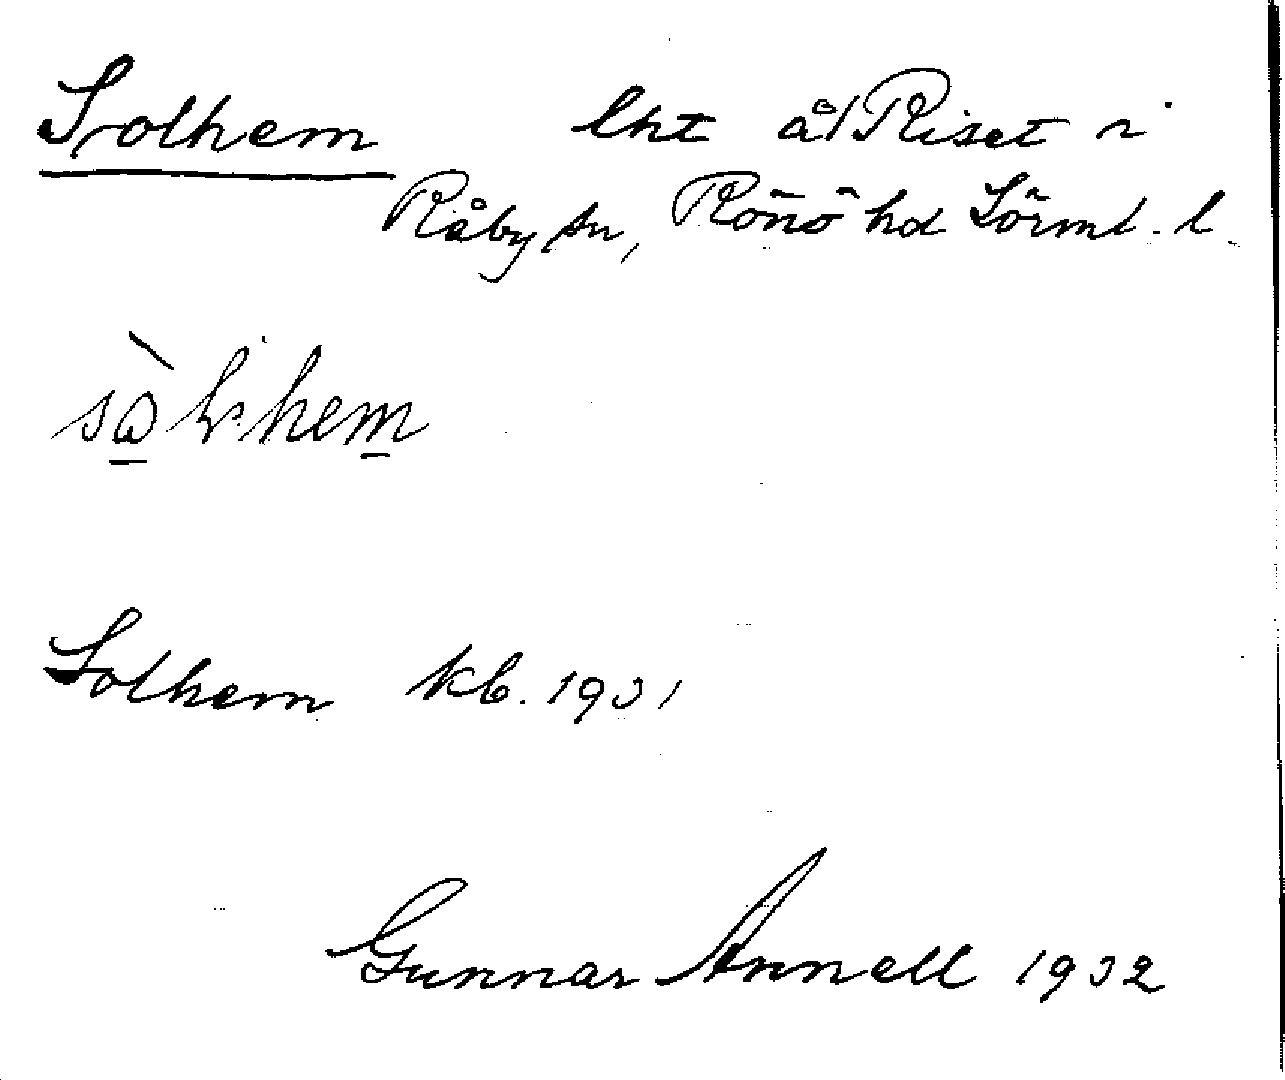 Solhem lht å/ Riset i
Råby sn, Rönö hd Sörml. l.
Solhem kb. 1931
Gunnar Annell 1932